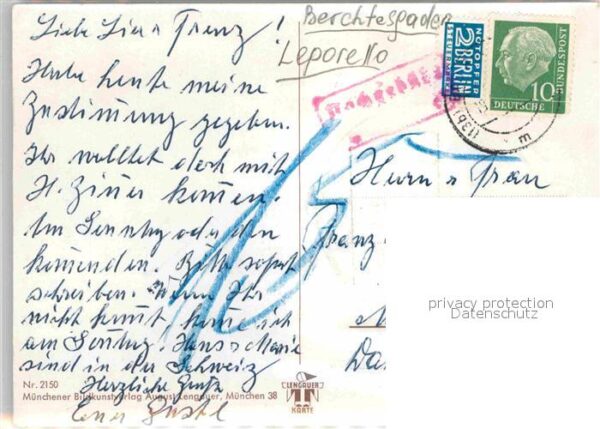 Liebe Lisa + Franz!
Habe heute meine
Zustimmung gegeben.
Ihr wolltet doch mit
H. Zimer kommen.
Am Sonntag oder den
kommenden. Bitte sofort
schreiben. Wenn Ihr
nicht kommt komme ich
am Sonntag. Hans + Marie
sind in der Schweiz
Herzliche Grüße
Eure Gustl
Nr. 2150
Münchener Bildkunstverlag August Lengauer, München 38
LENGAUER
KARTE
Berchtesgaden
Leporello
Nachgebühr
15
NOTOPFER
2 BERLIN
STEUERMARKE
DEUTSCHE
BUNDESPOST
10
Herrn + Frau
Franz
privacy protection
Datenschutz